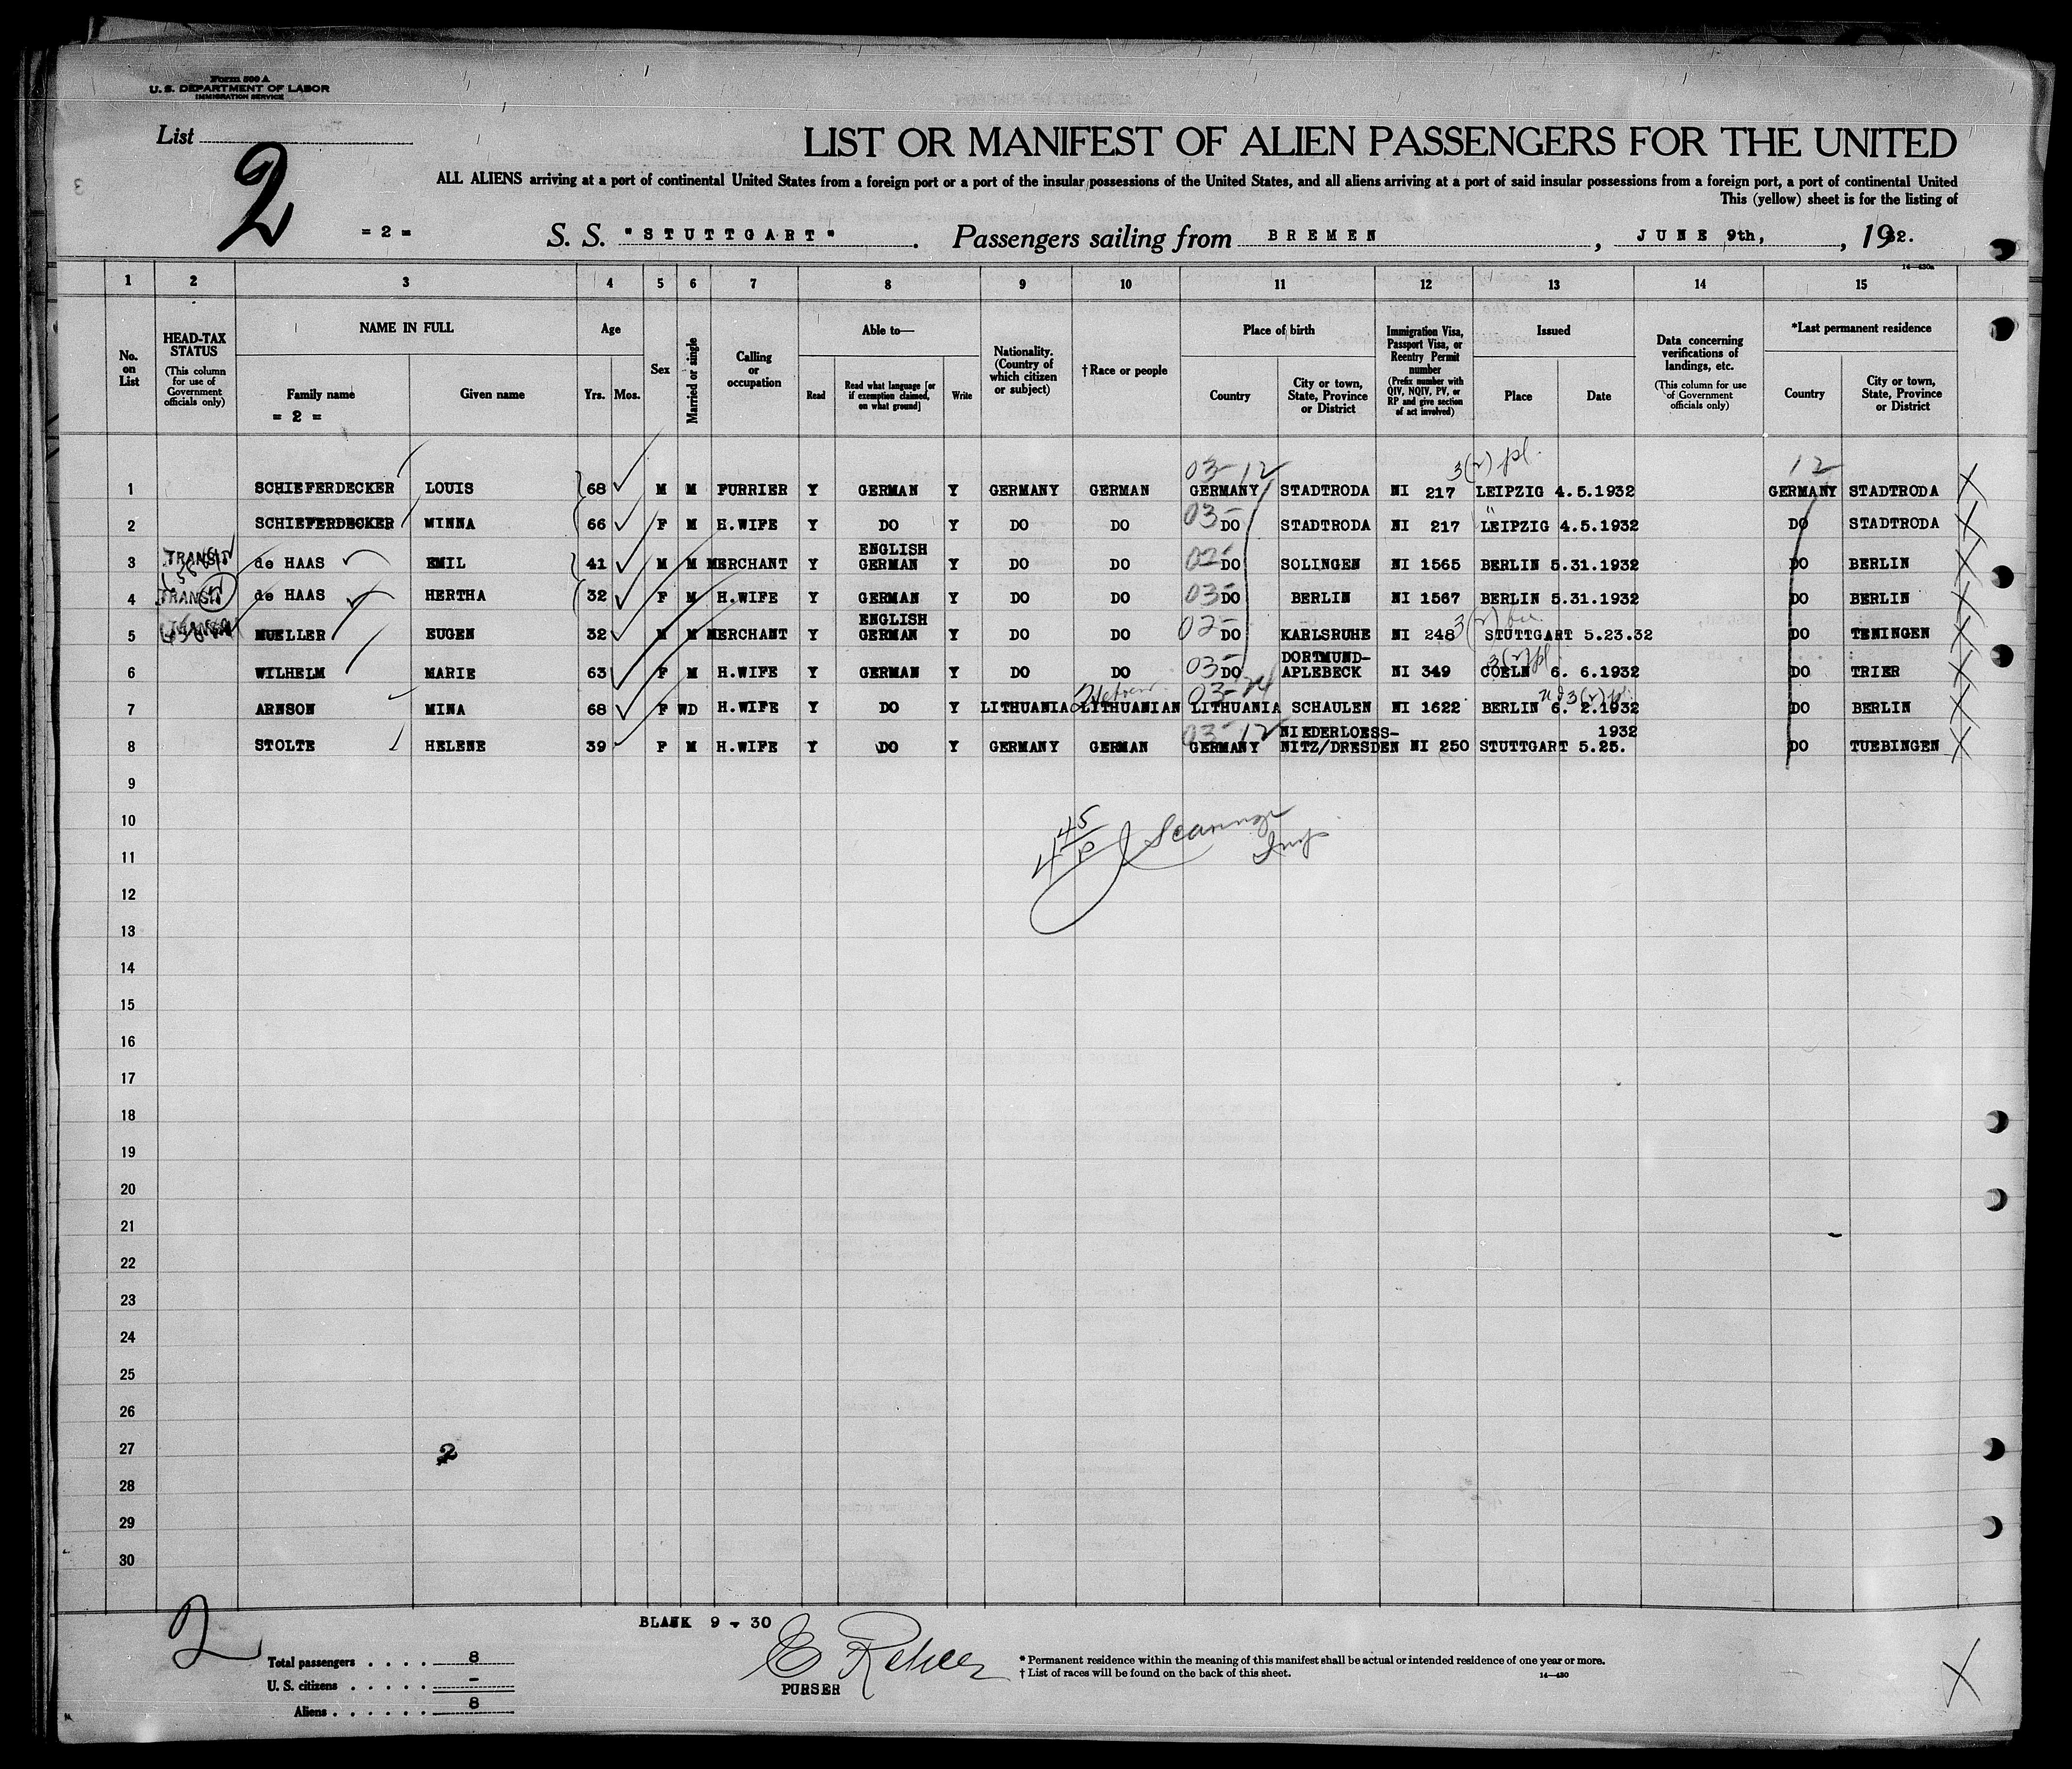 Form 500 A
U. S. DEPARTMENT OF LABOR
IMMIGRATION SERVICE
List
2
= 2 =
LIST OR MANIFEST OF ALIEN PASSENGERS FOR THE UNITED
ALL ALIENS arriving at a port of continental United States from a foreign port or a port of the insular possessions of the United States, and all aliens arriving at a port of said insular possessions from a foreign port, a port of continental United
This (yellow) sheet is for the listing of
S. S. "STUTTGART". Passengers sailing from BREMEN, JUNE 9th, , 1932.
14—430a
1 2 3 4 5 6 7 8 9 10 11 12 13 14 15
No. on List
HEAD-TAX STATUS (This column for use of Government officials only)
NAME IN FULL
Family name Given name
= 2 =
Age
Yrs. Mos.
Sex
Married or single
Calling or occupation
Able to—
Read
Read what language [or if exemption claimed, on what ground]
Write
Nationality. (Country of which citizen or subject)
† Race or people
Place of birth
Country
City or town, State, Province or District
Immigration Visa, Passport Visa, or Reentry Permit number (Prefix number with QIV, NQIV, PV, or RP and give section of act involved)
Issued
Place Date
Data concerning verifications of landings, etc. (This column for use of Government officials only)
*Last permanent residence
Country
City or town, State, Province or District
03-12 3(2) pl. 12
1 SCHIEFERDECKER LOUIS 68 M M FURRIER Y GERMAN Y GERMANY GERMAN GERMANY STADTRODA NI 217 LEIPZIG 4.5.1932 GERMANY STADTRODA
2 SCHIEFERDECKER MINNA 66 F M H.WIFE Y DO Y DO DO 03- DO STADTRODA NI 217 LEIPZIG 4.5.1932 DO STADTRODA
3 TRANSIT de HAAS EMIL 41 M M MERCHANT Y ENGLISH GERMAN Y DO DO 02- DO SOLINGEN NI 1565 BERLIN 5.31.1932 DO BERLIN
4 TRANSIT de HAAS HERTHA 32 F M H.WIFE Y GERMAN Y DO DO 03- DO BERLIN NI 1567 BERLIN 5.31.1932 DO BERLIN
5 MUELLER EUGEN 32 M M MERCHANT Y ENGLISH GERMAN Y DO DO 02- DO KARLSRUHE NI 248 STUTTGART 5.23.32 DO TENINGEN
6 WILHELM MARIE 63 F M H.WIFE Y GERMAN Y DO DO 03- DO DORTMUND-APLEBECK NI 349 COELN 6. 6.1932 DO TRIER
7 ARNSON MINA 68 F WD H.WIFE Y DO Y LITHUANIA Hebrew LITHUANIAN 03-24 LITHUANIA SCHAULEN NI 1622 BERLIN 6. 2.1932 DO BERLIN
8 STOLTE HELENE 39 F M H.WIFE Y DO Y GERMANY GERMAN 03-12 GERMANY NIEDERLOESS-NITZ/DRESDEN NI 250 STUTTGART 5.25. 1932 DO TUEBINGEN
9
10
11
12
13
14
15
16
17
18
19
20
21
22
23
24
25
26
27 2
28
29
30
2
BLANK 9 - 30
Total passengers . . . . 8
U. S. citizens . . . . . -
Aliens . . . . . . 8
PURSER
* Permanent residence within the meaning of this manifest shall be actual or intended residence of one year or more.
† List of races will be found on the back of this sheet.
14—430